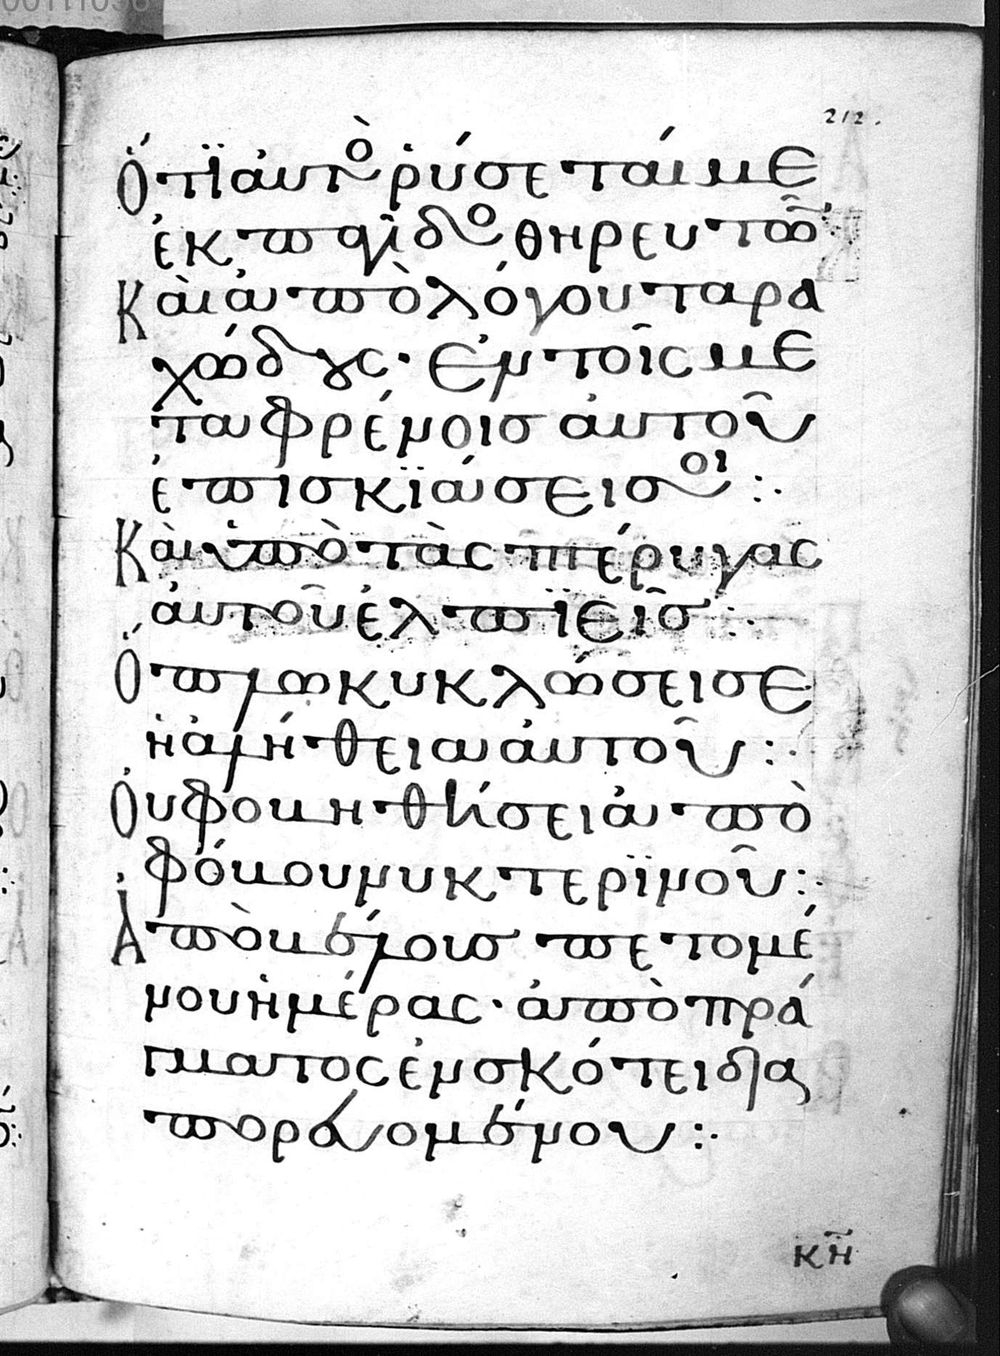 212.
Ὅτι αὐτὸς ῥύσεταί με
ἐκ παγίδος θηρευτῶν
Καὶ ἀπὸ λόγου ταρα
χώδους· Ἐν τοῖς με
ταφρένοις αὐτοῦ
ἐπισκιάσει σοι :·
Καὶ ὑπὸ τὰς πτέρυγας
αὐτοῦ ἐλπιεῖς :·
Ὅπλῳ κυκλώσει σε
ἡ ἀλήθεια αὐτοῦ :·
Οὐ φοβηθήσει ἀπὸ
φόβου νυκτερινοῦ :·
Ἀπὸ βέλους πετομέ
νου ἡμέρας· ἀπὸ πρά
γματος ἐν σκότει δια
πορευομένου :·
κη